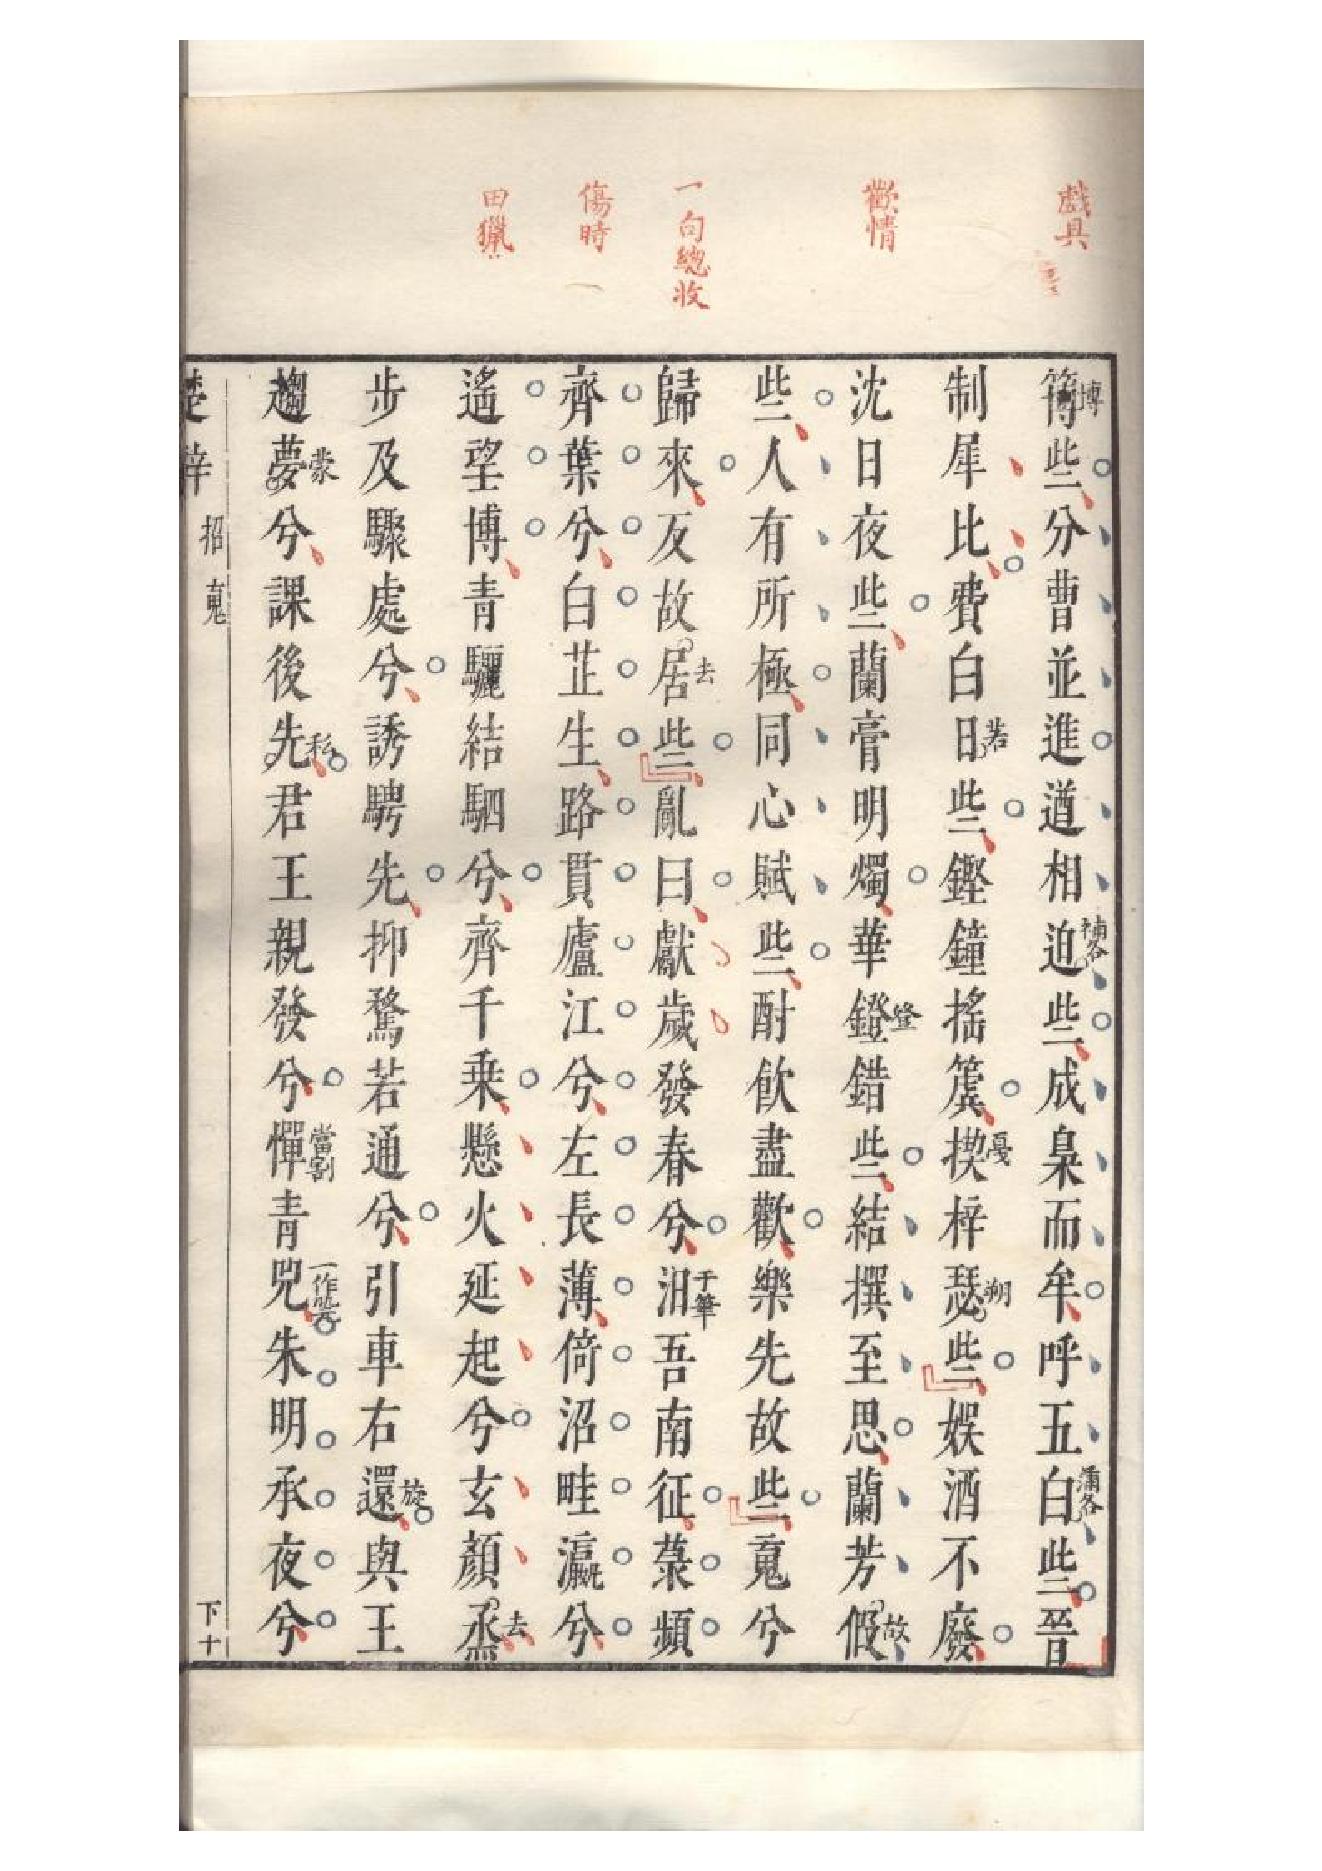 戲具
歡情
一句總收
傷時
田獵
簙博些分曹並進遒相迫補各些成梟而牟呼五白蒲各些晉
制犀比費白日若些鏗鐘搖簴揳戛梓瑟朔些娛酒不廢
沈日夜些蘭膏明燭華鐙登錯些結撰至思蘭芳假故
些人有所極同心賦些酎飲盡歡樂先故些䰟兮
歸來反故居去些亂曰獻歲發春兮汨于筆吾南征菉蘋
齊葉兮白芷生路貫廬江兮左長薄倚沼畦瀛兮
遙望博青驪結駟兮齊千乘懸火延起兮玄顏烝去
步及驟處兮誘騁先抑騖若通兮引車右還旋與王
趨夢蒙兮課後先私君王親發兮憚當割青兕一作㷀朱明承夜兮
楚辭
招䰟
下十